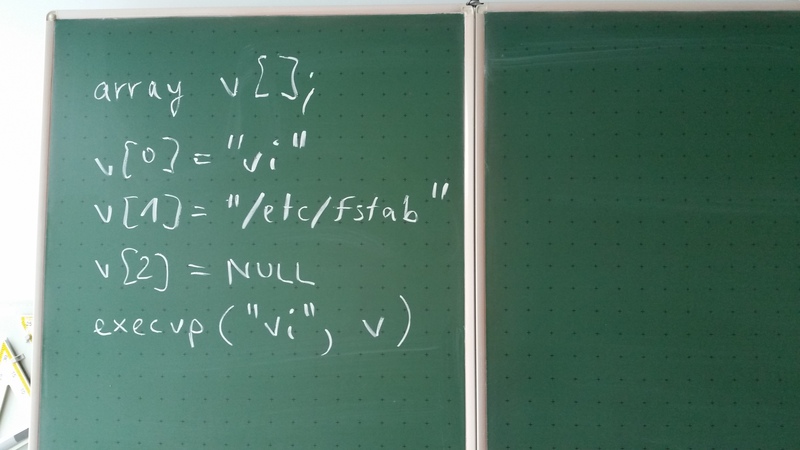 array v[];
v[0] = "vi"
v[1] = "/etc/fstab"
v[2] = NULL
execvp("vi", v)